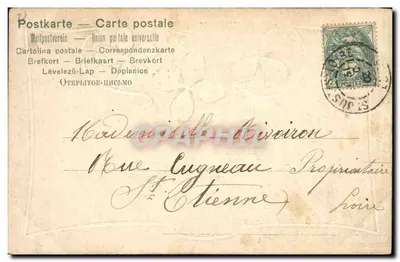 Postkarte — Carte postale
Weltpostverein — Union postale universelle
Cartolina postale — Correspondenzkarte
Brefkort — Briefkaart — Brevkort
Levelező-Lap — Dopisnice
Открытое-письмо
Mademoiselle Rivoiron
Rue Cugneau Propriétaire
St. Etienne
Loire